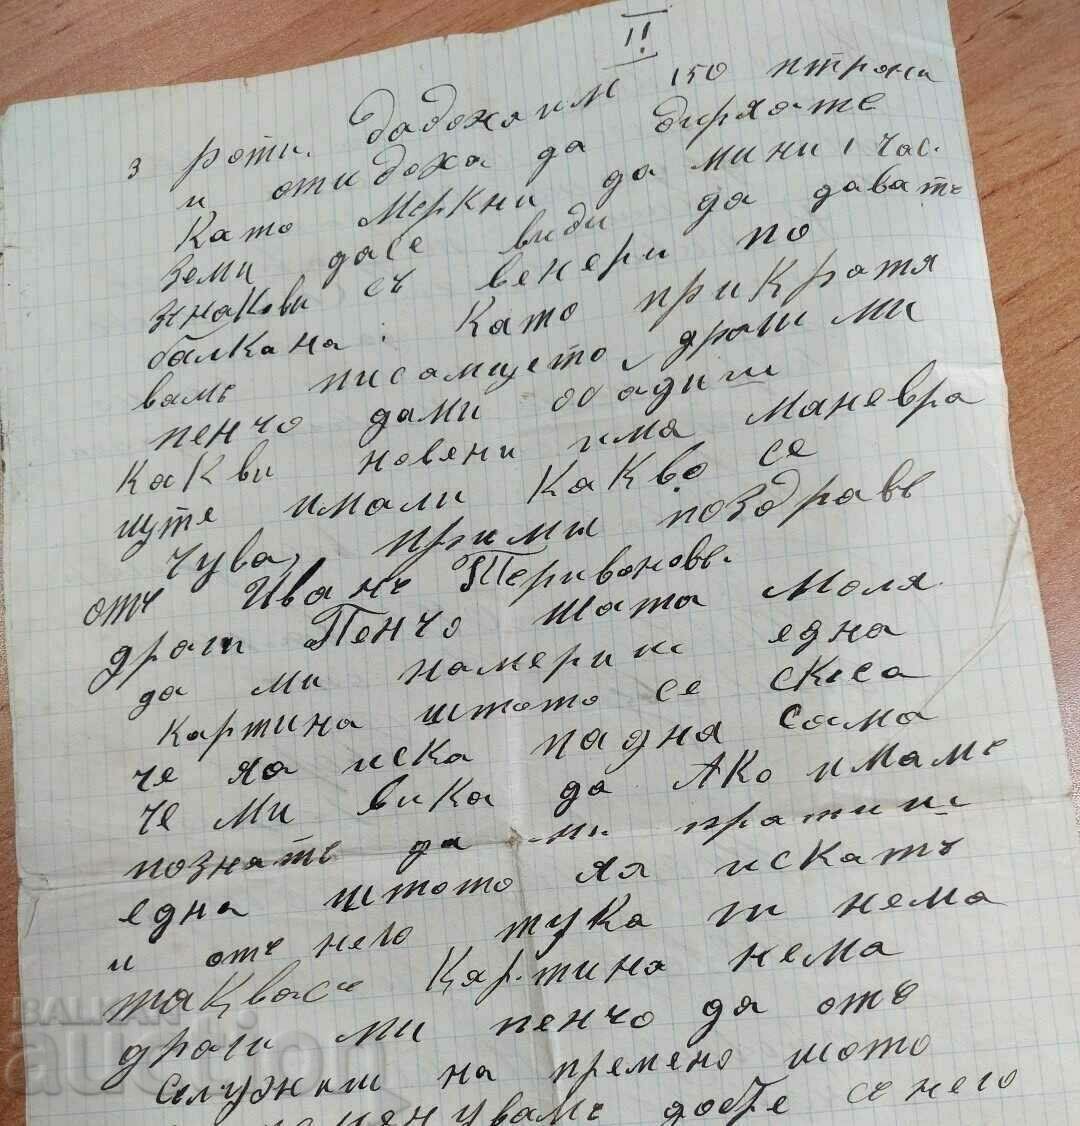 II
3 роти. дадоха им 150 птрони
и отидоха да диряате
Като Меркни да мини 1 час.
Земи дасе види да даватъ
знакови съ венери по
балкана. Като прикратя
вамъ писамцето, драги ми
пенчо дами обадиш
Какви новени има маневра
щте имали Какво се
чува, прими поздравъ
отъ Иванъ Теривоновъ.
драги Пенчо шата моля
да ми намериш една
картина штото се скаса
че яа иска падна сама
че ми вика да Ако имаме
познатъ да ми пратиш
една штото яя искатъ
и отъ него тука ги нема
таквасъ Картина нема
драги ми пенчо да ото
служиш на премено шото
добре съ него
BALKAN
auction